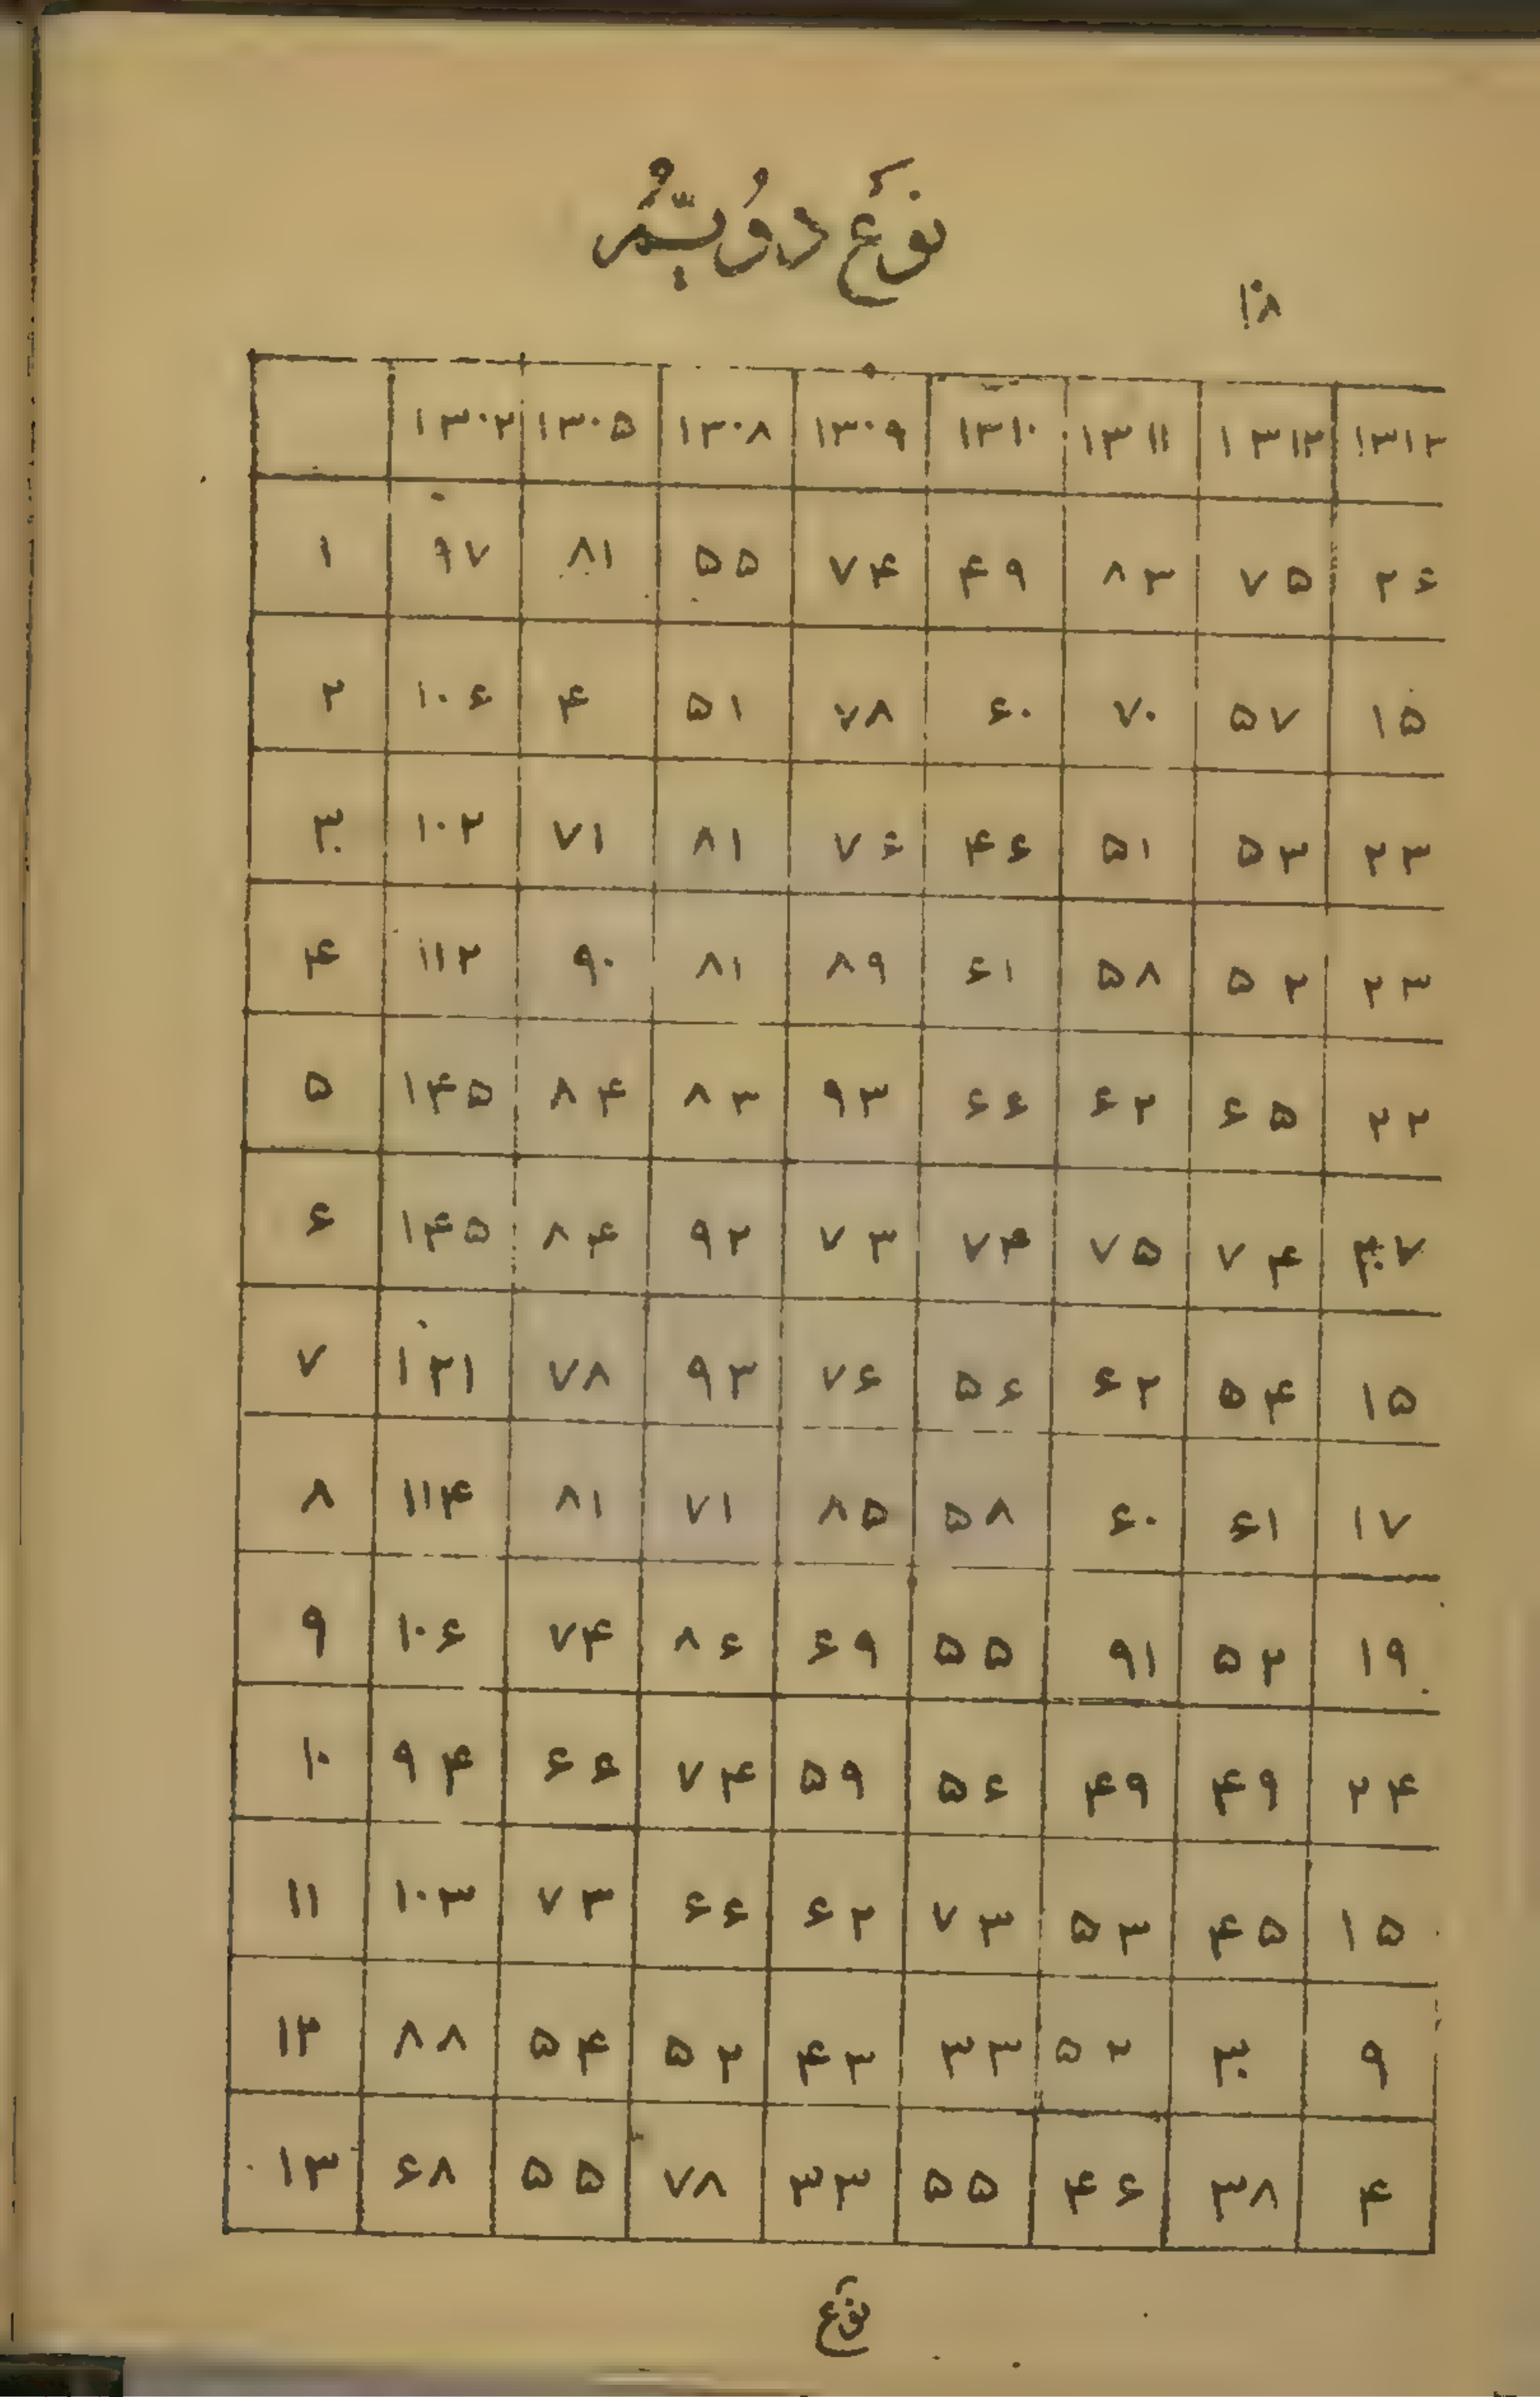 نوع دویّم
۱۸
۱۳۰۲ ۱۳۰۵ ۱۳۰۸ ۱۳۰۹ ۱۳۱۰ ۱۳۱۱ ۱۳۱۲ ۱۳۱۳
۱ ۹۷ ۸۱ ۵۵ ۷۴ ۴۹ ۸۳ ۷۵ ۲۶
۲ ۱۰۶ ۴ ۵۱ ۷۸ ۶۰ ۷۰ ۵۷ ۱۵
۳ ۱۰۲ ۷۱ ۸۱ ۷۶ ۴۶ ۵۱ ۵۳ ۲۳
۴ ۱۱۲ ۹۰ ۸۱ ۸۹ ۶۱ ۵۸ ۵۲ ۲۳
۵ ۱۴۵ ۸۴ ۸۳ ۹۳ ۶۶ ۶۲ ۶۵ ۲۲
۶ ۱۴۵ ۸۴ ۹۲ ۷۳ ۷۴ ۷۵ ۷۴
۷ ۱۲۱ ۷۸ ۹۳ ۷۶ ۵۶ ۶۲ ۵۴ ۱۵
۸ ۱۱۴ ۸۱ ۷۱ ۸۵ ۵۸ ۶۰ ۶۱ ۱۷
۹ ۱۰۶ ۷۴ ۸۶ ۶۹ ۵۵ ۹۱ ۵۲ ۱۹
۱۰ ۹۴ ۶۶ ۷۴ ۵۹ ۵۶ ۴۹ ۴۹ ۲۴
۱۱ ۱۰۳ ۷۳ ۶۶ ۶۲ ۷۳ ۵۳ ۴۵ ۱۵
۱۲ ۸۸ ۵۴ ۵۲ ۴۳ ۳۳ ۵۲ ۳۰ ۹
۱۳ ۶۸ ۵۵ ۷۸ ۳۳ ۵۵ ۴۶ ۳۸ ۴
نوع